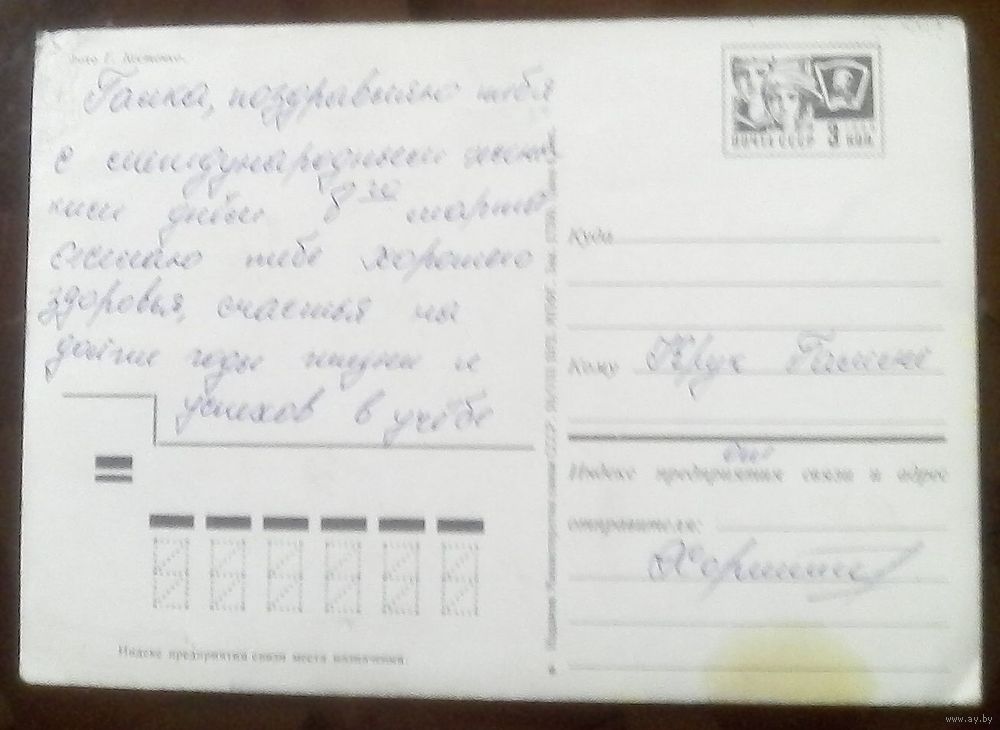 Фото Г. Костенко.
Галка, поздравляю тебя
с международным женс-
ким днём 8 ЭО марта
желаю тебе хорошего
здоровья, счастья на
долгие годы жизни и
успехов в учёбе
Индекс предприятия связи места назначения
ПОЧТА СССР 3 КОП.
Куда
Кому Крук Галине
Индекс предприятия связи и адрес
отправителя:
www.ay.by